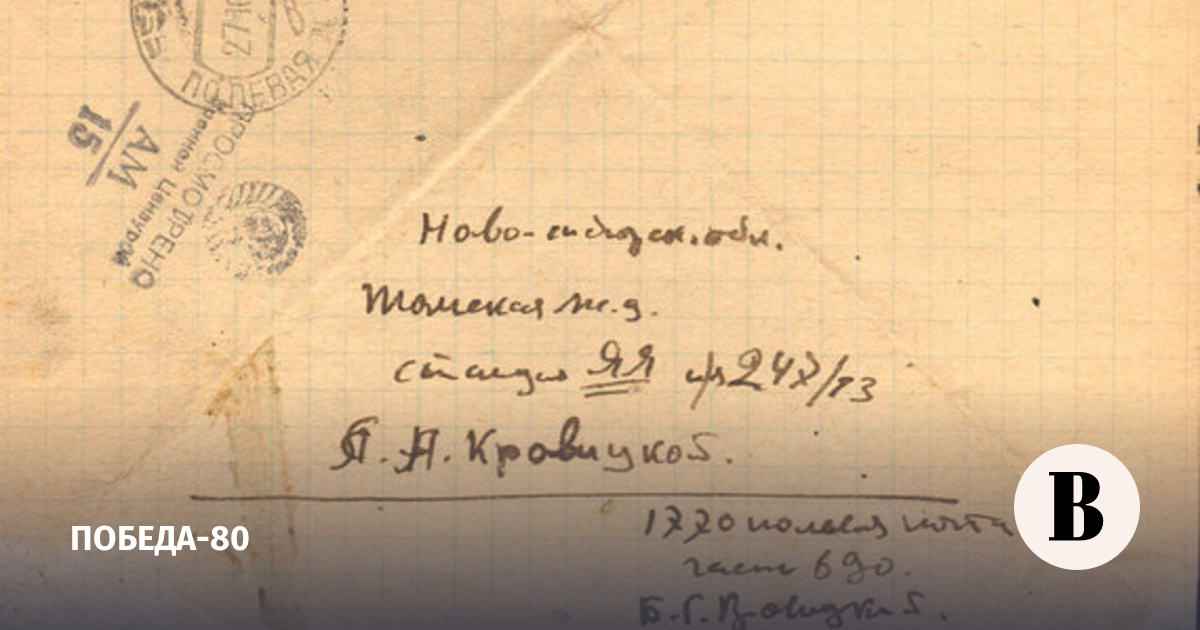 27
ПОЛЕВАЯ
15
АМ
ПРОСМОТРЕНО
Военной Цензурой
Ново-сибирск. обл.
Томская ж.д.
станция ЯЯ п/я 247/13
Кровицкой.
1770 полевая почта
часть 690.
Б.Г.
ПОБЕДА-80
В